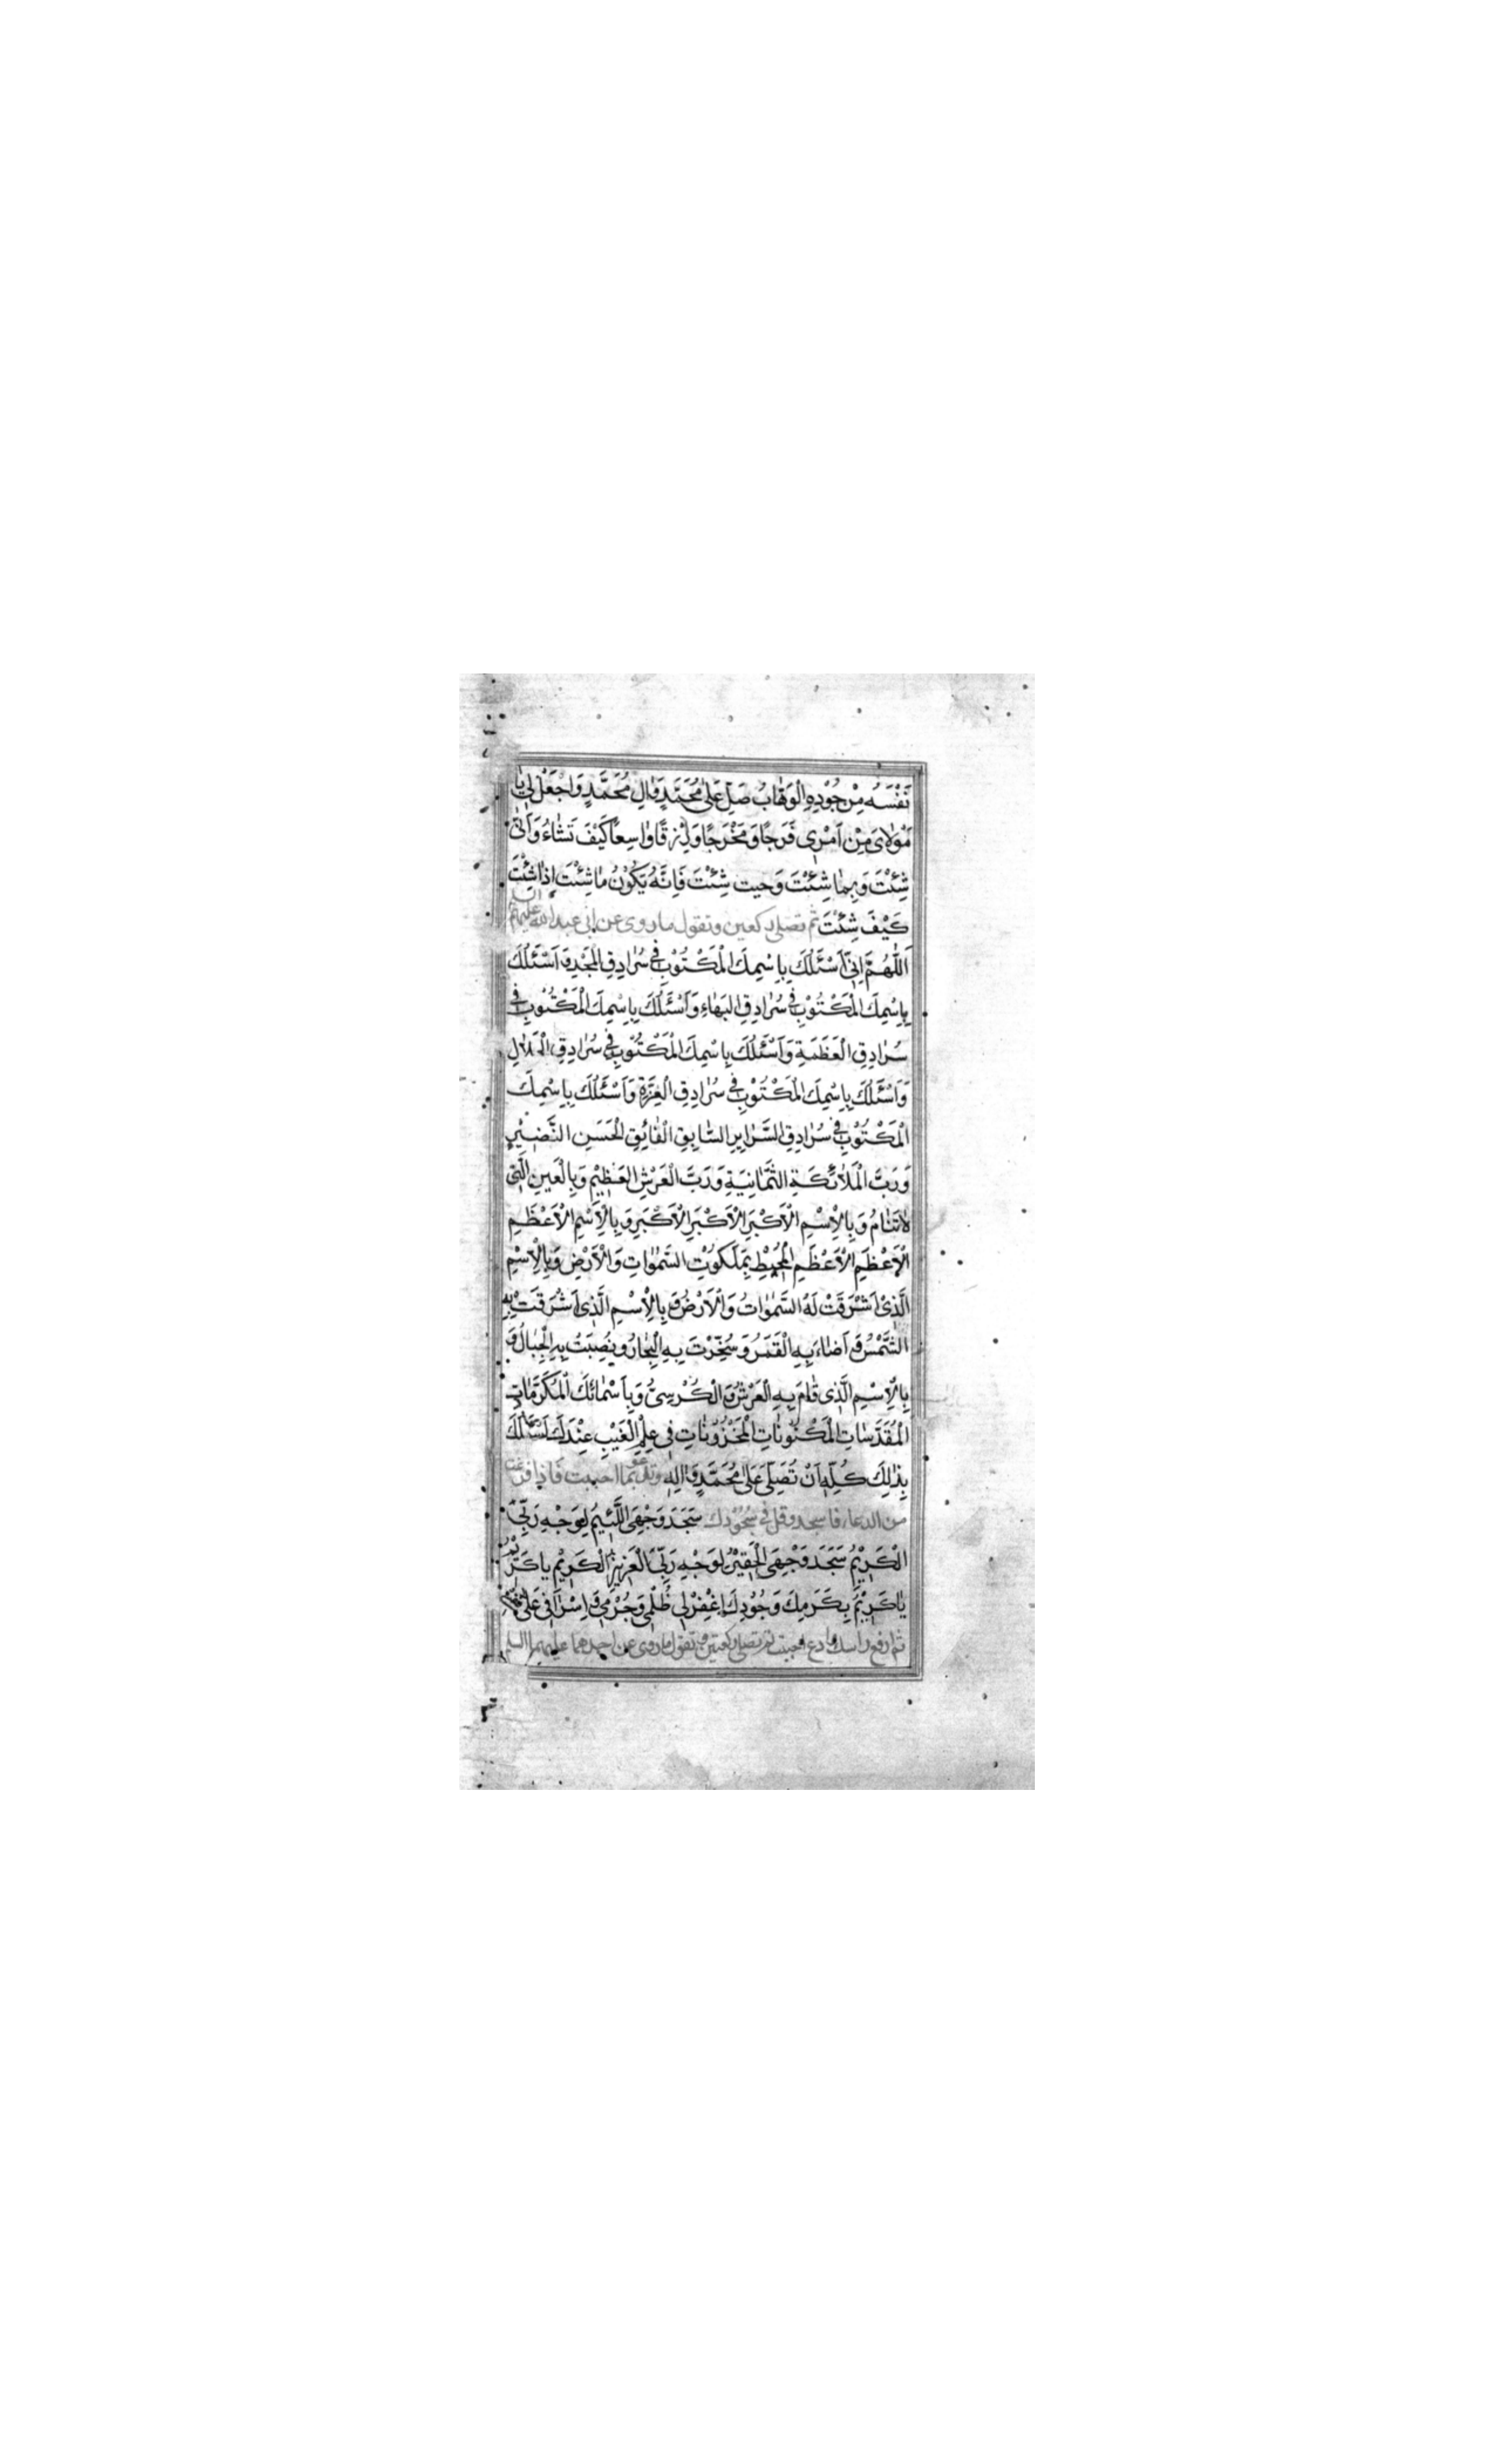 نَفْسَهُ مِنْ جُوْدِهِ الْوَهّٰابُ صَلِّ عَلىٰ مُحَمَّدٍ وَاٰلِ مُحَمَّدٍ وَاجْعَلْ لِي يٰا
مَوْلاٰىَ مِنْ اَمْرِي فَرَجًا وَمَخْرَجًا وَرِزْقًا وٰاسِعًا كَيْفَ تَشٰاءُ وَاَنّٰى
شِئْتَ وَبِمٰا شِئْتَ وَحيت شِئْتَ فَاِنَّهُ يَكُوْنُ مٰا شِئْتَ اِذٰا شِئْتَ
كَيْفَ شِئْتَ ثم تصلى ركعين وتقول ما روى عن ابى عبد الله عليه
اَللّٰهُمَّ اِنِّى اَسْئَلُكَ بِاِسْمِكَ الْمَكْتُوْبِ فِى سُرٰادِقِ الْمَجْدِ وَ اَسْئَلُكَ
بِاِسْمِكَ الْمَكْتُوْبِ فِى سُرٰادِقِ الْبَهٰاءِ وَاَسْئَلُكَ بِاِسْمِكَ الْمَكْتُوْبِ فِى
سُرٰادِقِ الْعَظَمَةِ وَاَسْئَلُكَ بِاسْمِكَ الْمَكْتُوْبِ فِى سُرٰادِقِ الْجَلاٰلِ
وَاَسْئَلُكَ بِاِسْمِكَ الْمَكْتُوْبِ فِى سُرٰادِقِ الْعِزَّةِ وَاَسْئَلُكَ بِاِسْمِكَ
الْمَكْتُوْبِ فِى سُرٰادِقِ السَّرٰايِرِ السّٰابِقِ الْفٰائِقِ الْحَسَنِ النَّضٖيْرِ
وَرَبِّ الْمَلاٰئِكَةِ الثَّمٰانِيَةِ وَرَبِّ الْعَرْشِ الْعَظٖيْمِ وَبِالْعَيْنِ الَّتِى
لاٰ تَنٰامُ وَبِالْاِسْمِ الْاَكْبَرِ الْاَكْبَرِ الْاَكْبَرِ وَبِالْاِسْمِ الْاَعْظَمِ
الْاَعْظَمِ الْاَعْظَمِ الْمُحٖيْطِ بِمَلَكُوْتِ السَّمٰوٰاتِ وَالْاَرْضِ وَبِالْاِسْمِ
الَّذِىْ اَشْرَقَتْ لَهُ السَّمٰوٰاتُ وَالْاَرْضُ وَ بِالْاِسْمِ الَّذِى اَشْرَقَتْ بِهِ
الشَّمْسُ وَ اَضٰاءَ بِهِ الْقَمَرُ وَسُجِّرَتْ بِهِ الْبِحٰارُ وَنُصِبَتْ بِهِ الْجِبٰالُ وَ
بِالْاِسْمِ الَّذِى قٰامَ بِهِ الْعَرْشُ وَالْكُرْسِىُّ وَبِاَسْمٰائِكَ الْمُكَرَّمٰاتِ
الْمُقَدَّسٰاتِ الْمَكْنُونٰاتِ الْمَخْزُوْنٰاتِ فِى عِلْمِ الْغَيْبِ عِنْدَكَ اَسْئَلُكَ
بِذٰلِكَ كُلِّهِ اَنْ تُصَلِّىَ عَلىٰ مُحَمَّدٍ وَاٰلِهِ وتدعو بما احببت فاذا فرغت
من الدعاء فاسجد وقل فى سجودك سَجَدَ وَجْهِىَ اللَّئٖيمُ لِوَجْهِ رَبِّىَ
الْكَرٖيْمِ سَجَدَ وَجْهِىَ الْحَقٖيْرُ لِوَجْهِ رَبِّىَ الْعَزٖيزِ الْكَرٖيْمِ يا كَرٖيْمُ
يٰا كَرٖيْمُ بِكَرَمِكَ وَجُوْدِكَ اِغْفِرْ لِى ظُلْمِى وَجُرْمِى وَ اِسْرٰافِى عَلىٰ نَفْسِى
ثم ارفع راسك وادع بما احببت ثم تصلى ركعتين وتقول ما روى عن احدهما عليهما السلم